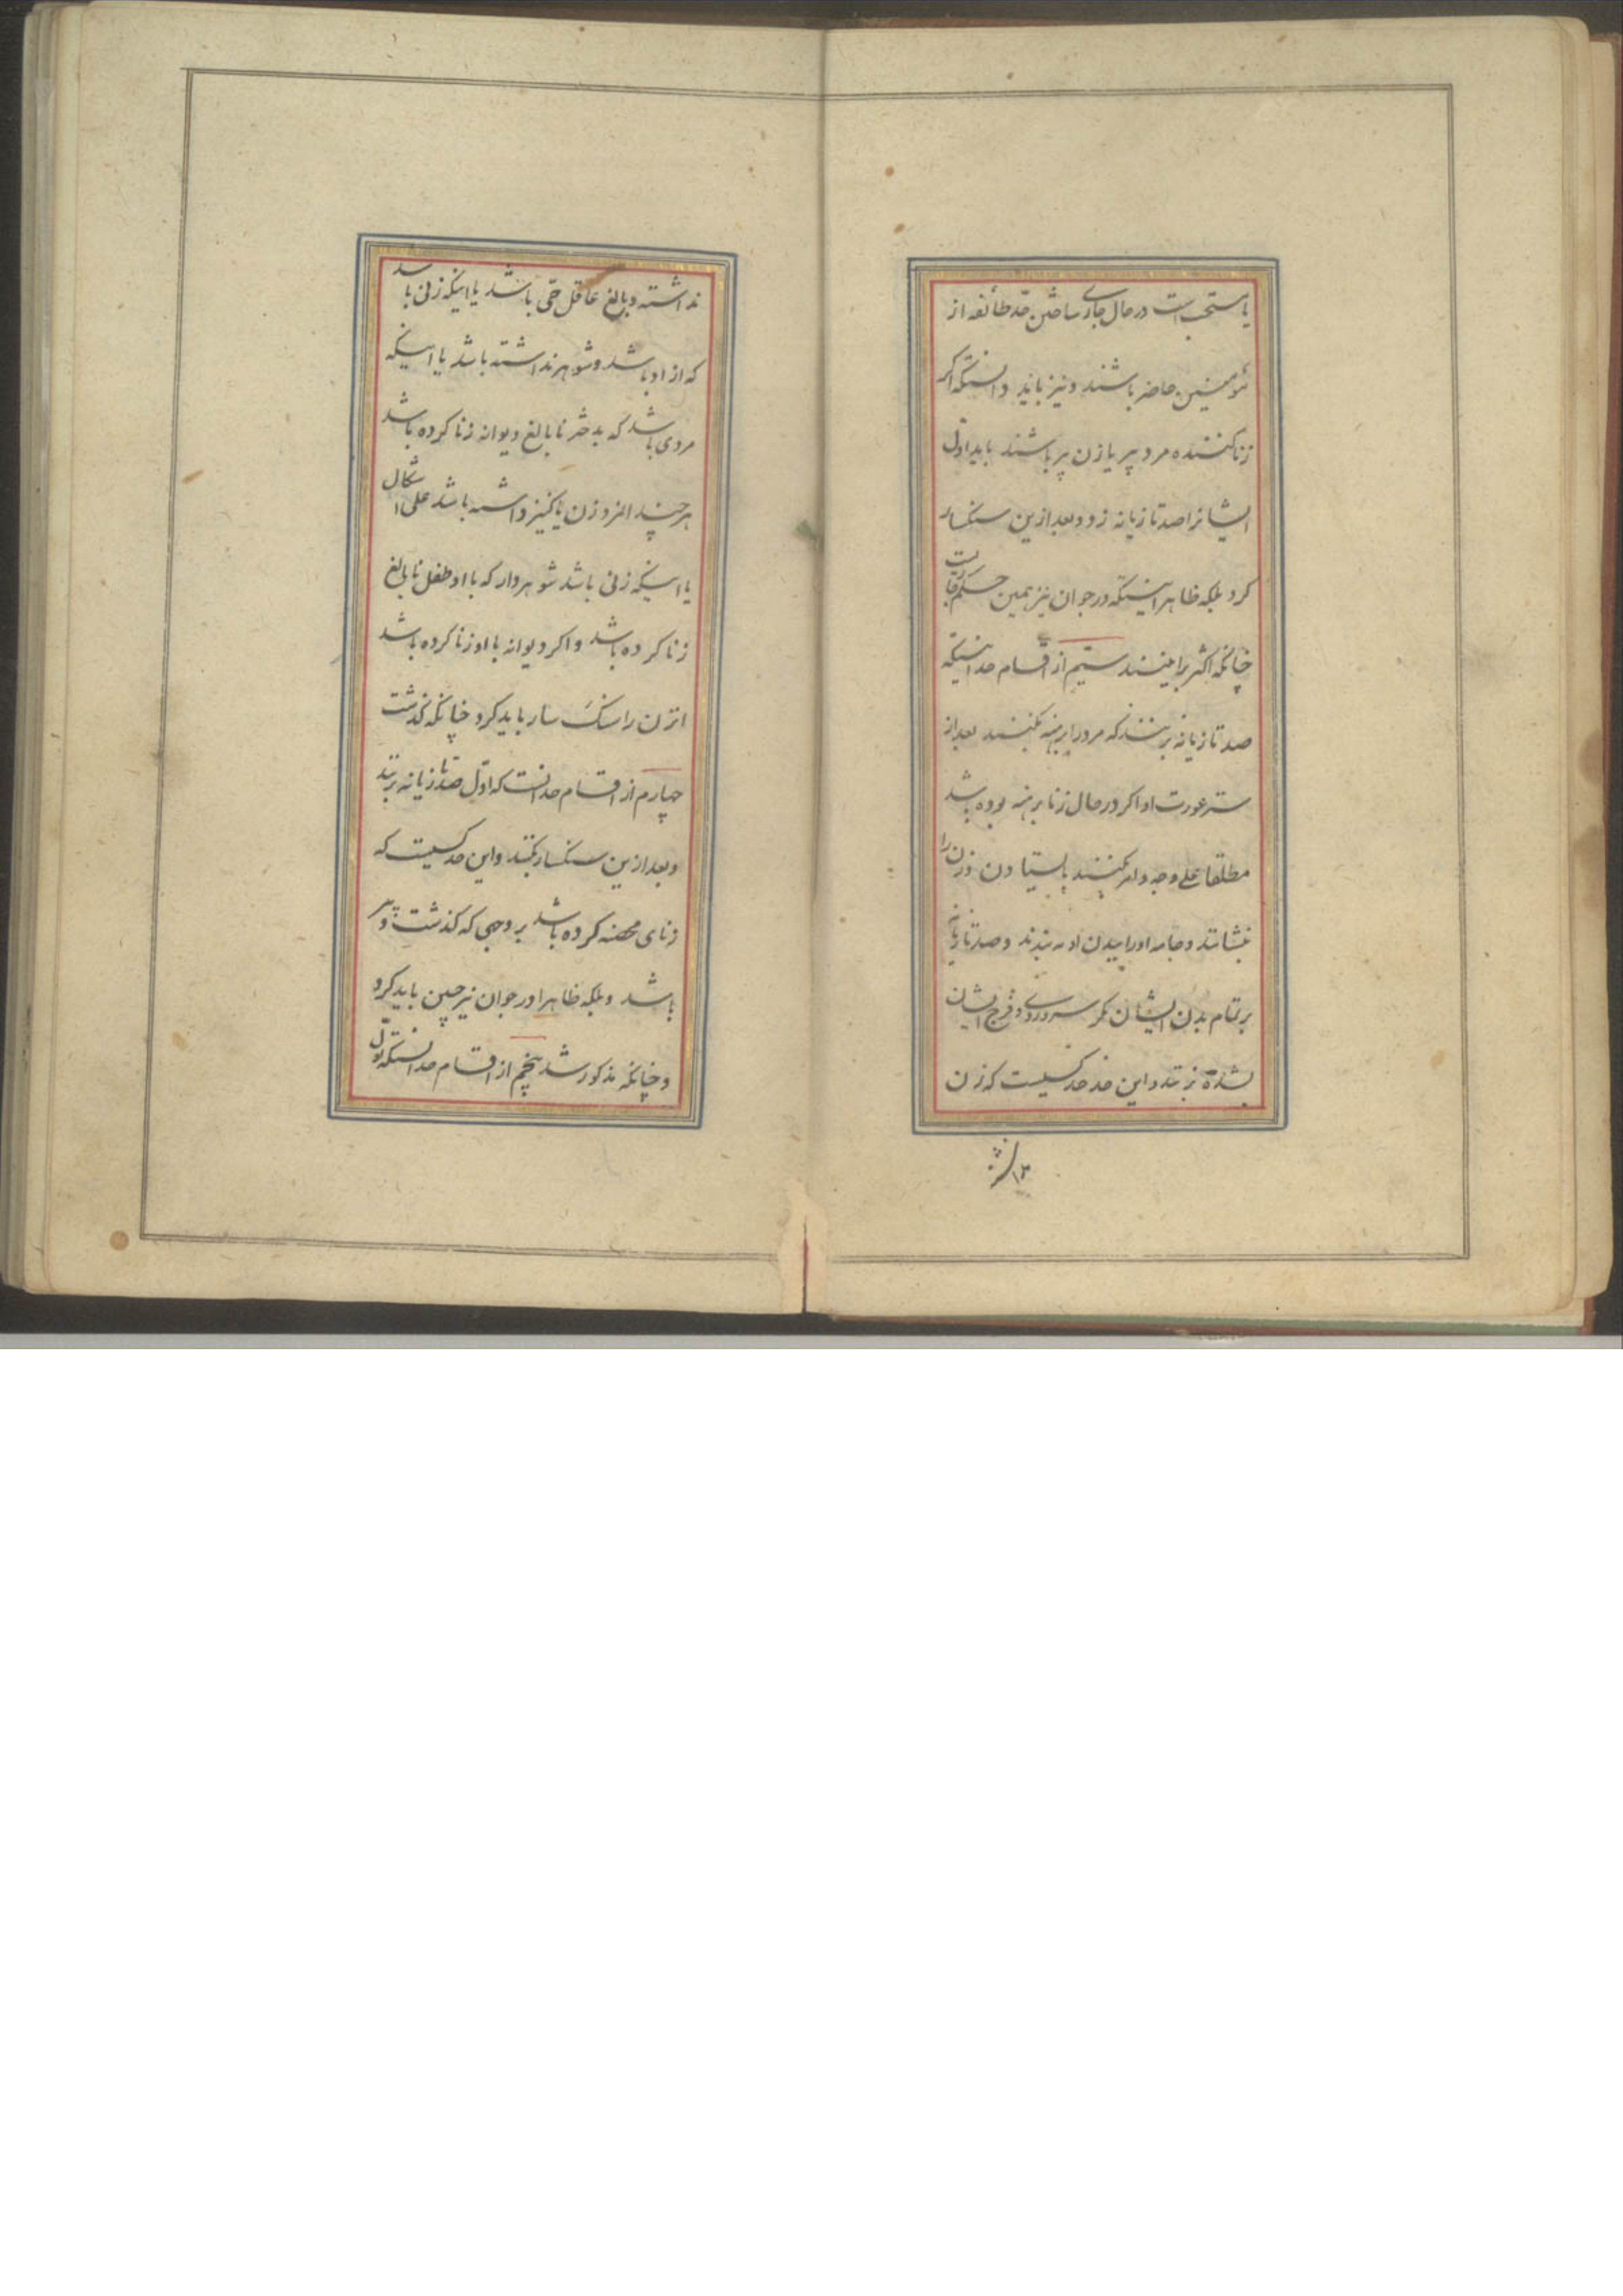 یا مستحب است در حال جاری ساختن حد طائفه از
مؤمنین حاضر باشند و نیز باید دانستکه اکر
زنا کننده مرد پیر یا زن پیر باشند باید اول
ایشانرا صد تازیانه زد و بعد ازین سنکسار
کرد بلکه ظاهرا اینستکه در جوان نیز همین حکم جاریست
چنانکه اکثر براینند سیّم از اقسام حد اینستکه
صد تازیانه بزنند که مرد را برهنه بکنند بعد از
ستر عورت او اکر در حال زنا برهنه بوده باشد
مطلقا علی وجه و امر بکنند بایستادن و زن را
بنشانند و جامه اورا ببدن او به بندند و صد تازیانه
بر تمام بدن ایشان مکر سر و روی و فرج ایشان
بشدة بزنند و این حد حد کسیست که زن
نداشته و بالغ عاقل حی باشد یا اینکه زنی باشد
که ازاد باشد و شوهر نداشته باشد یا اینکه
مردی باشد که بدختر نابالغ دیوانه زنا کرده باشد
هر چند انمرد زن یا کنیز داشته باشد علی اشکال
یا اینکه زنی باشد شوهردار که با او طفل نابالغ
زنا کرده باشد و اکر دیوانه با او زنا کرده باشد
انزن را سنک سار باید کرد چنانکه کذشت
چهارم از اقسام حد انست که اول صد تازیانه بزنند
و بعد ازین سنکسار بکنند و این حد کسیست که
زنای محصنه کرده باشد بر وجهی که کذشت و پیر
باشد و بلکه ظاهرا در جوان نیز چنین باید کرد
و چنانکه مذکور شد پنجم از اقسام حد انستکه اول